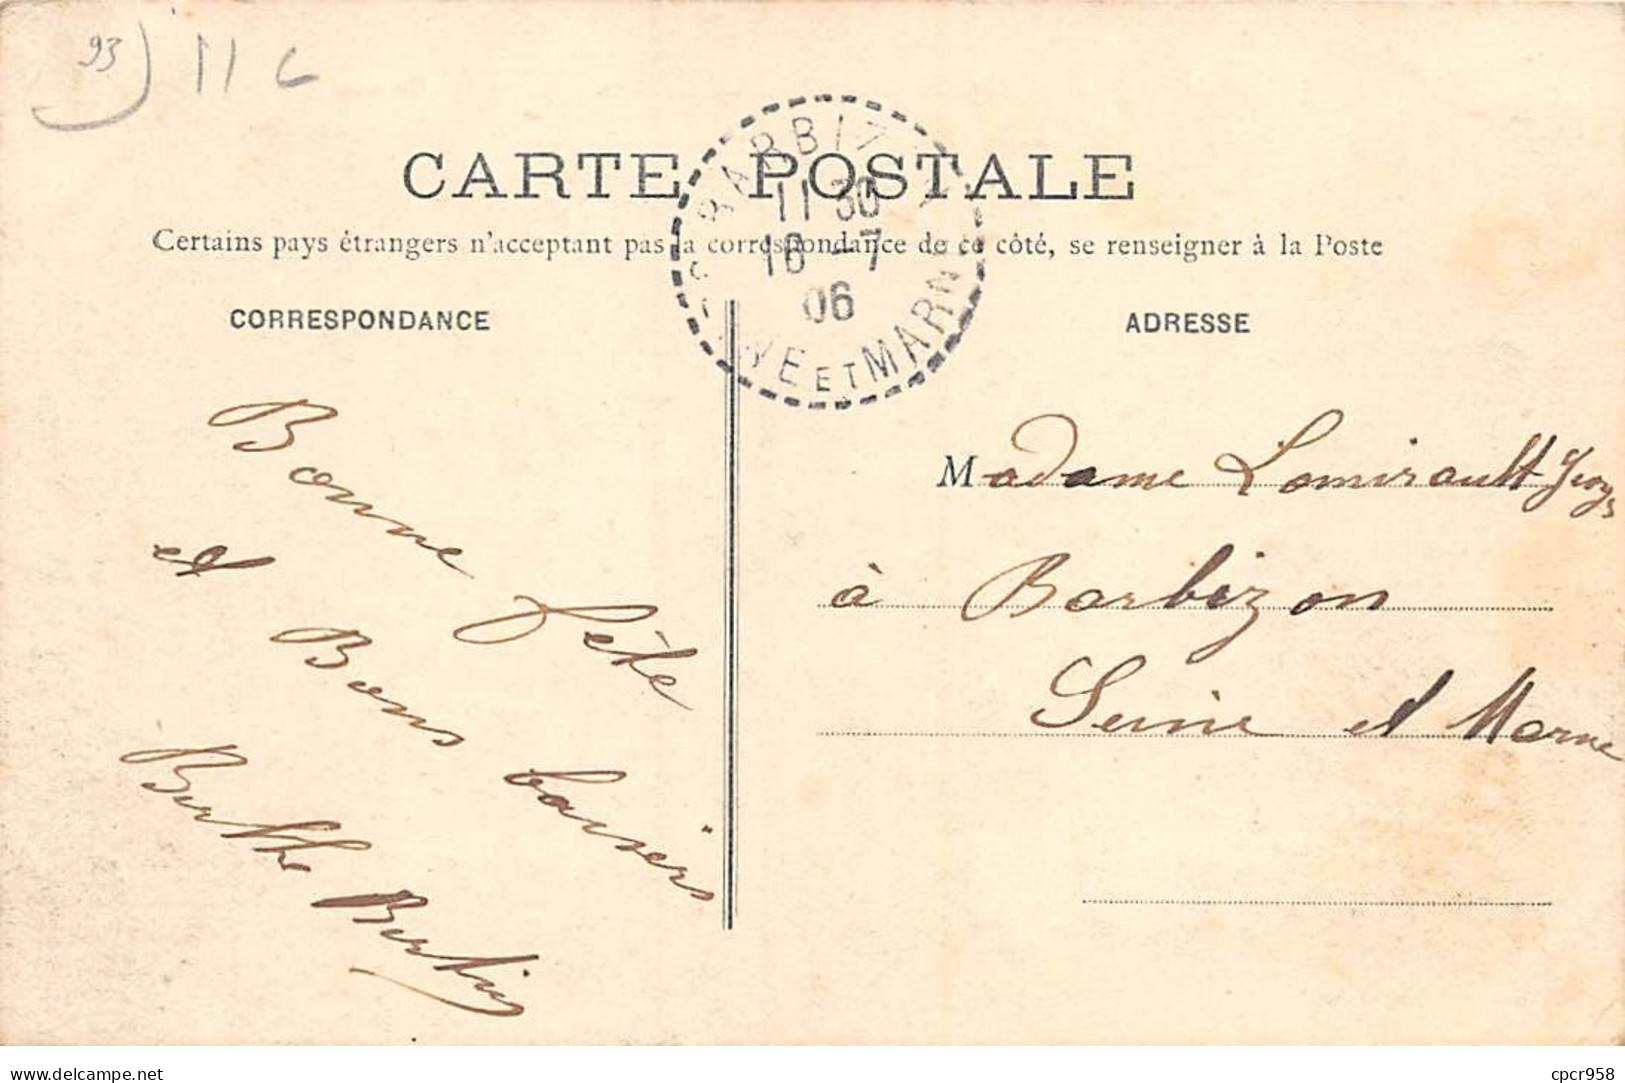 93 11 6
CARTE POSTALE
Certains pays étrangers n'acceptant pas la correspondance de ce côté, se renseigner à la Poste
BARBIZ
11 30
16 -7
06
NE ET MARNE
CORRESPONDANCE
Bonne fête
et Bons baisers
Berthe
ADRESSE
Madame Lomirault
à Barbizon
Seine et Marne
www.delcampe.net
cpcr958